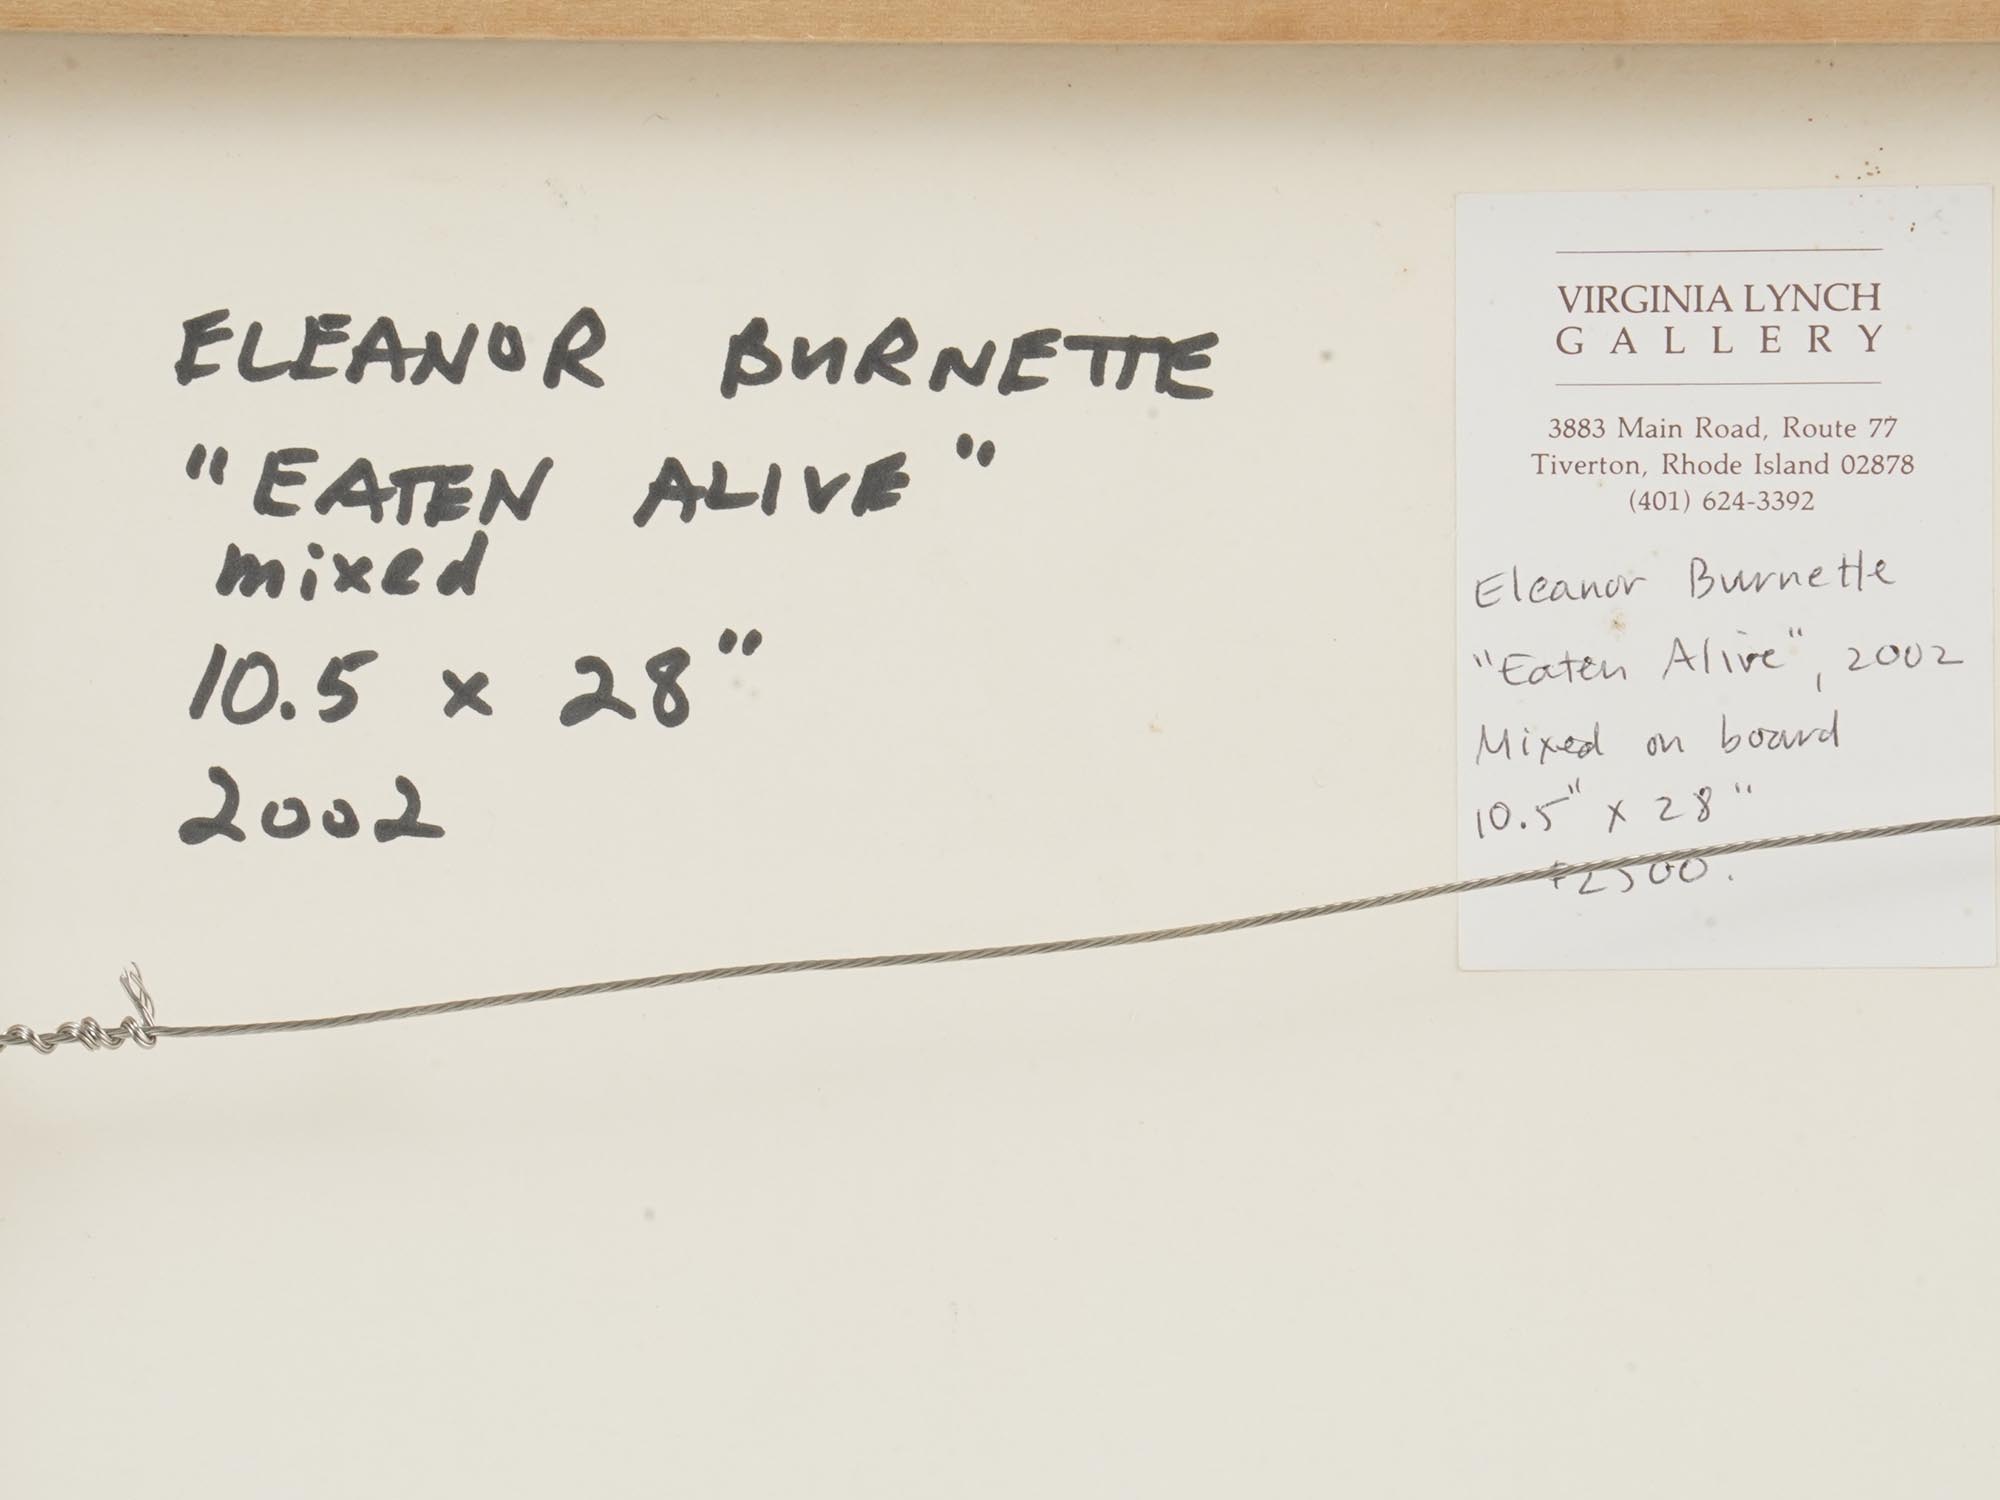 ELEANOR BURNETTE
"EATEN ALIVE"
mixed
10.5 x 28"
2002
VIRGINIA LYNCH
GALLERY
3883 Main Road, Route 77
Tiverton, Rhode Island 02878
(401) 624-3392
Eleanor Burnette
"Eaten Alive", 2002
Mixed on board
10.5" x 28"
$2500.